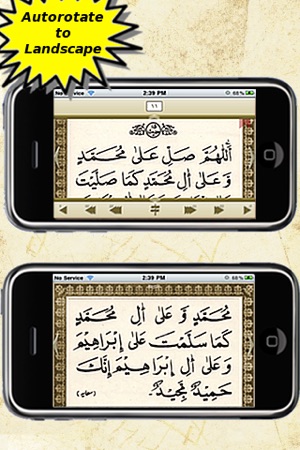 Autorotate
to
Landscape
No Service 2:39 PM 68%
١١
اَللّٰهُمَّ صَلِّ عَلىٰ مُحَمَّدٍ
وَّ عَلىٰ اٰلِ مُحَمَّدٍ كَمَا صَلَّيْتَ
No Service 2:39 PM 68%
مُحَمَّدٍ وَّ عَلىٰ اٰلِ مُحَمَّدٍ
كَمَا سَلَّمْتَ عَلىٰ اِبْرَاهِيْمَ
وَعَلىٰ اٰلِ اِبْرَاهِيْمَ اِنَّكَ
حَمِيْدٌ مَّجِيْدٌ.